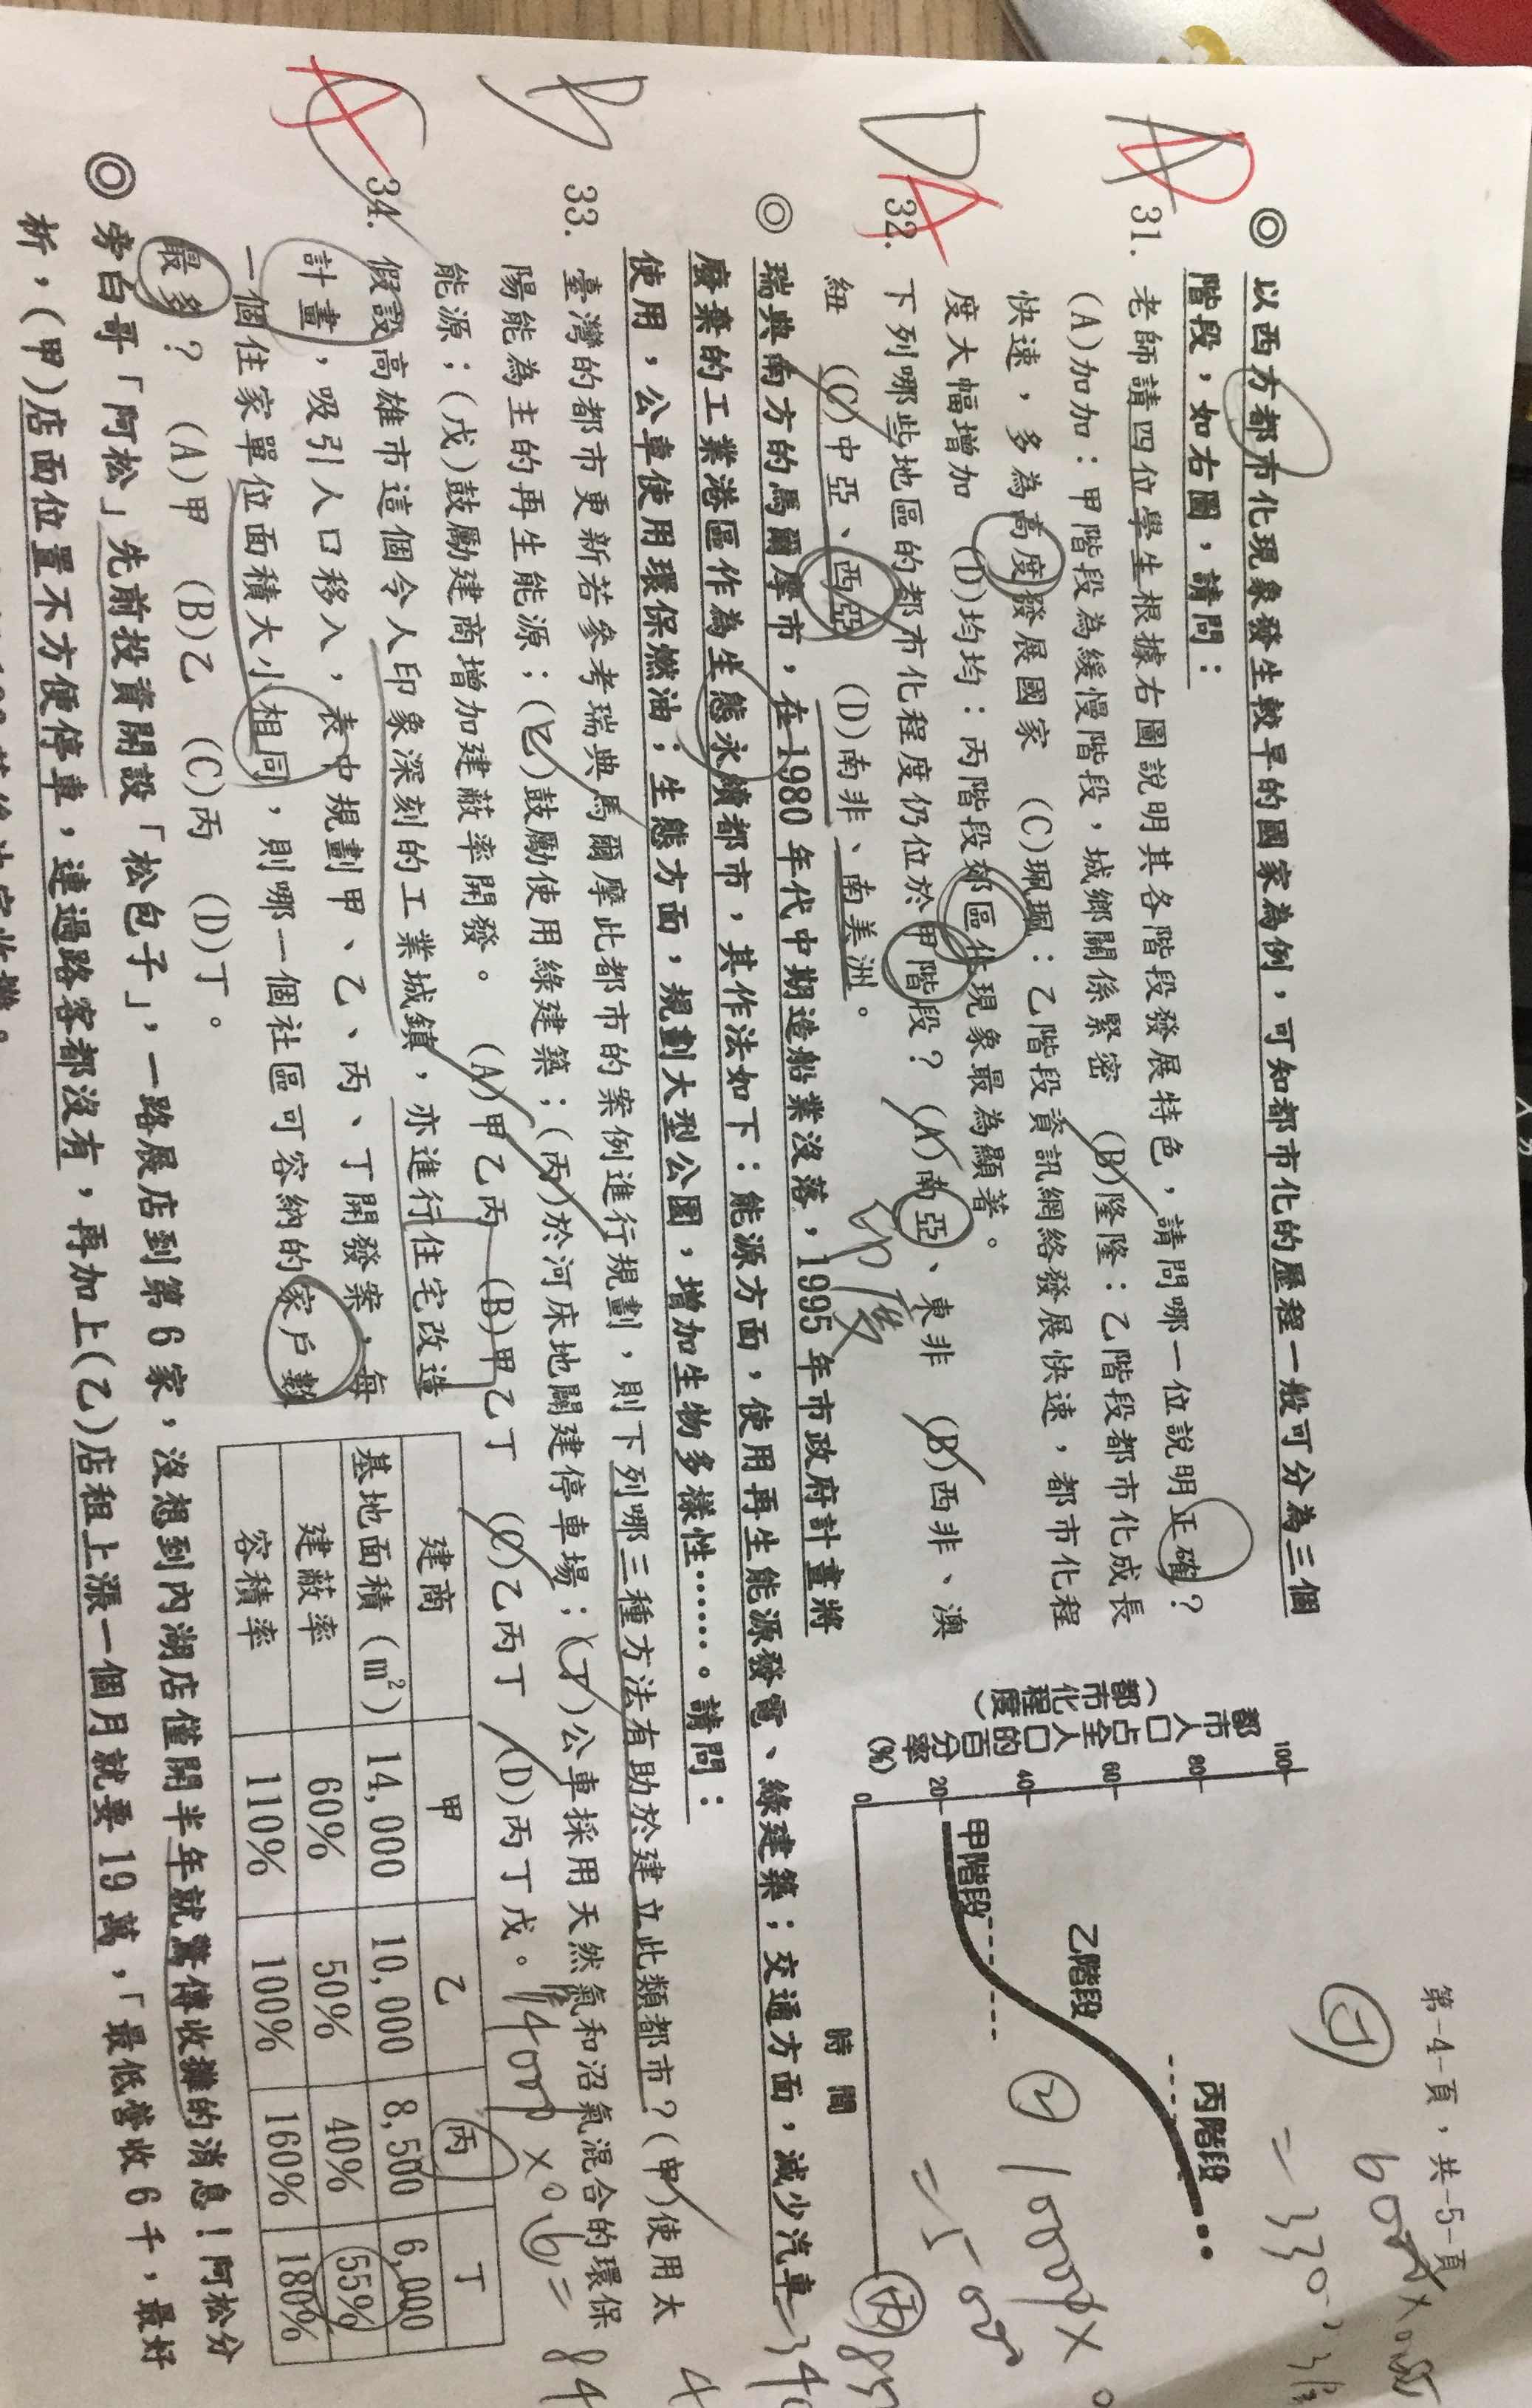 第-4-頁，共-5-頁
◎ 以西方都市化現象發生較早的國家為例，可知都市化的歷程一般可分為三個
階段，如右圖，請問：
31. 老師請四位學生根據右圖說明其各階段發展特色，請問哪一位說明正確？
(A)加加：甲階段為緩慢階段，城鄉關係緊密 (B)隆隆：乙階段都市化成長
快速，多為高度發展國家 (C)珮珮：乙階段資訊網絡發展快速，都市化程
度大幅增加 (D)均均：丙階段郊區化現象最為顯著。
32. 下列哪些地區的都市化程度仍位於甲階段？ (A)南亞、東非 (B)西非、澳
紐 (C)中亞、西亞 (D)南非、南美洲。
印度
都市人口占全人口的百分率(%)
（都市化程度）
100
80
60
40
20
0
甲階段
乙階段
丙階段
時間
◎ 瑞典南方的馬爾摩市，在1980年代中期造船業沒落，1995年市政府計畫將
廢棄的工業港區作為生態永續都市，其作法如下：能源方面，使用再生能源發電、綠建築；交通方面，減少汽車
使用，公車使用環保燃油；生態方面，規劃大型公園，增加生物多樣性……。請問：
33. 臺灣的都市更新若參考瑞典馬爾摩此都市的案例進行規劃，則下列哪三種方法有助於建立此類都市？(甲)使用太
陽能為主的再生能源；(乙)鼓勵使用綠建築；(丙)於河床地闢建停車場；(丁)公車採用天然氣和沼氣混合的環保
能源；(戊)鼓勵建商增加建蔽率開發。 (A)甲乙丙 (B)甲乙丁 (C)乙丙丁 (D)丙丁戊。
34. 假設高雄市這個令人印象深刻的工業城鎮，亦進行住宅改造
計畫，吸引人口移入，表中規劃甲、乙、丙、丁開發案，每
一個住家單位面積大小相同，則哪一個社區可容納的家戶數
最多？ (A)甲 (B)乙 (C)丙 (D)丁。
建商 甲 乙 丙 丁
基地面積（m²） 14,000 10,000 8,500 6,000
建蔽率 60% 50% 40% 55%
容積率 110% 100% 160% 180%
◎ 旁白哥「阿松」先前投資開設「松包子」，一路展店到第6家，沒想到內湖店僅開半年就驚傳收攤的消息！阿松分
析，(甲)店面位置不方便停車，連過路客都沒有，再加上(乙)店租上漲一個月就要19萬，「最低營收6千，最好